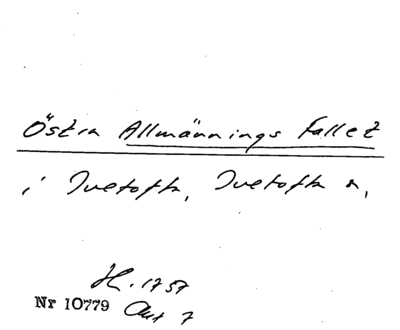 Östra Allmännings fallet
i Ivetofta, Ivetofta s,
H. 1757
Nr 10779 Akt 7